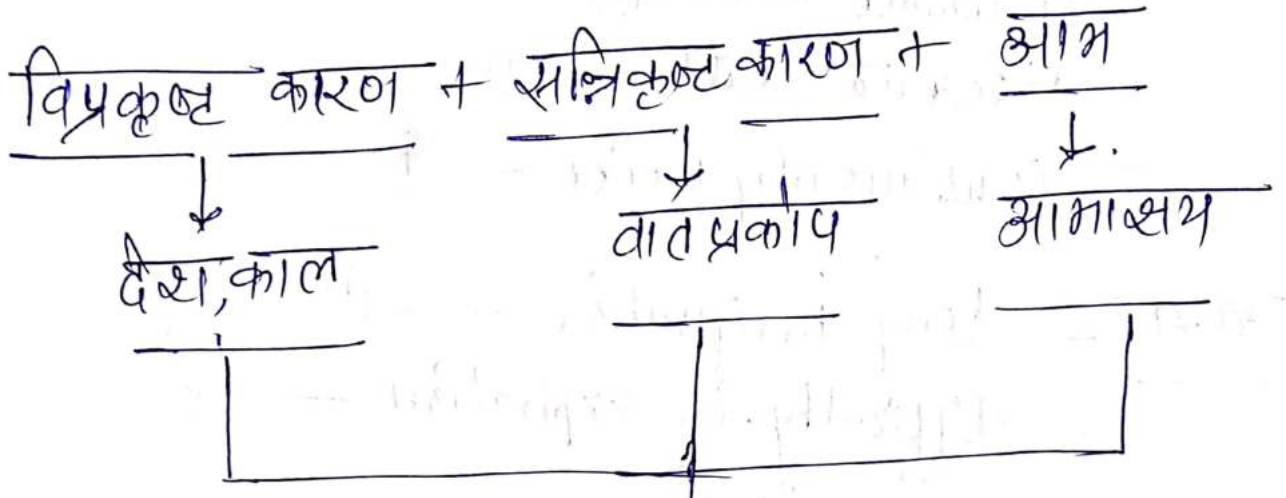 विप्रकृष्ट कारण + सन्निकृष्ट कारण + आम
देश, काल वातप्रकोप आमाशय